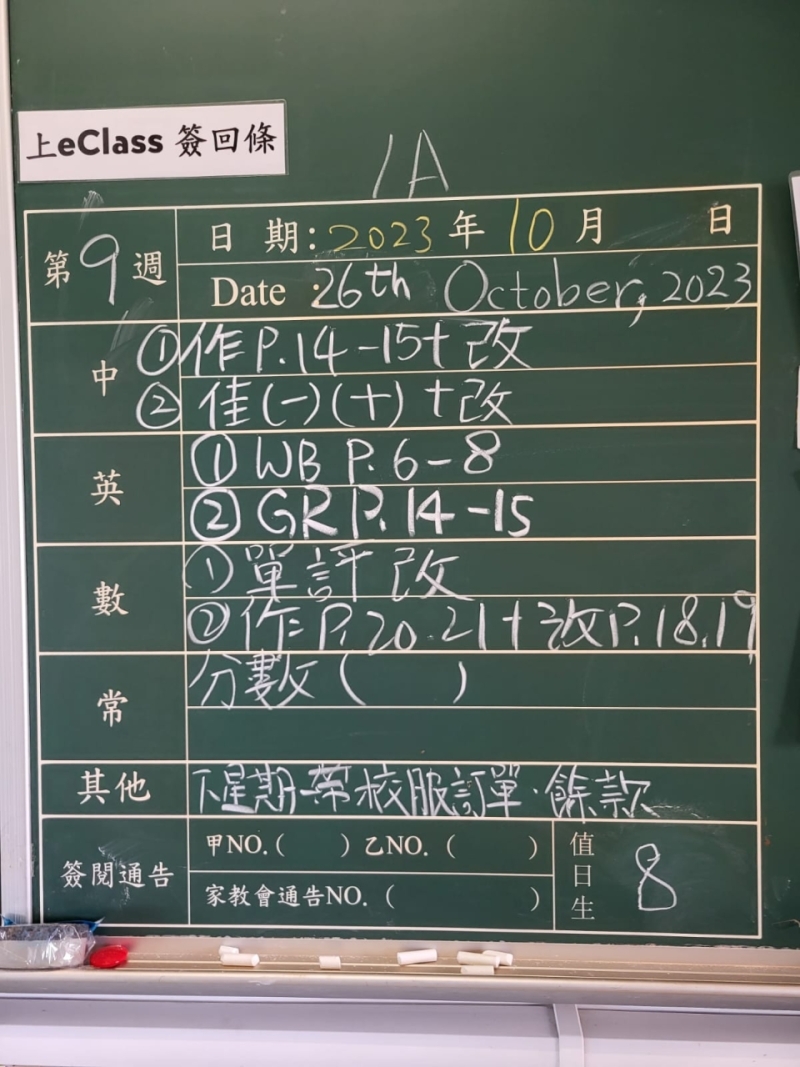 上eClass 簽回條
1A
第9週
日 期：2023年10月 日
Date : 26th October, 2023
中
①作P.14-15+改
②佳(一)(十)+改
英
①WB P.6-8
②GR P.14-15
數
①單評改
②作P.20.21+改P.18.19
常
分數( )
其他
下星期一帶校服訂單．餘款
簽閱通告
甲NO.( ) 乙NO.( )
家教會通告NO.( )
值日生
8